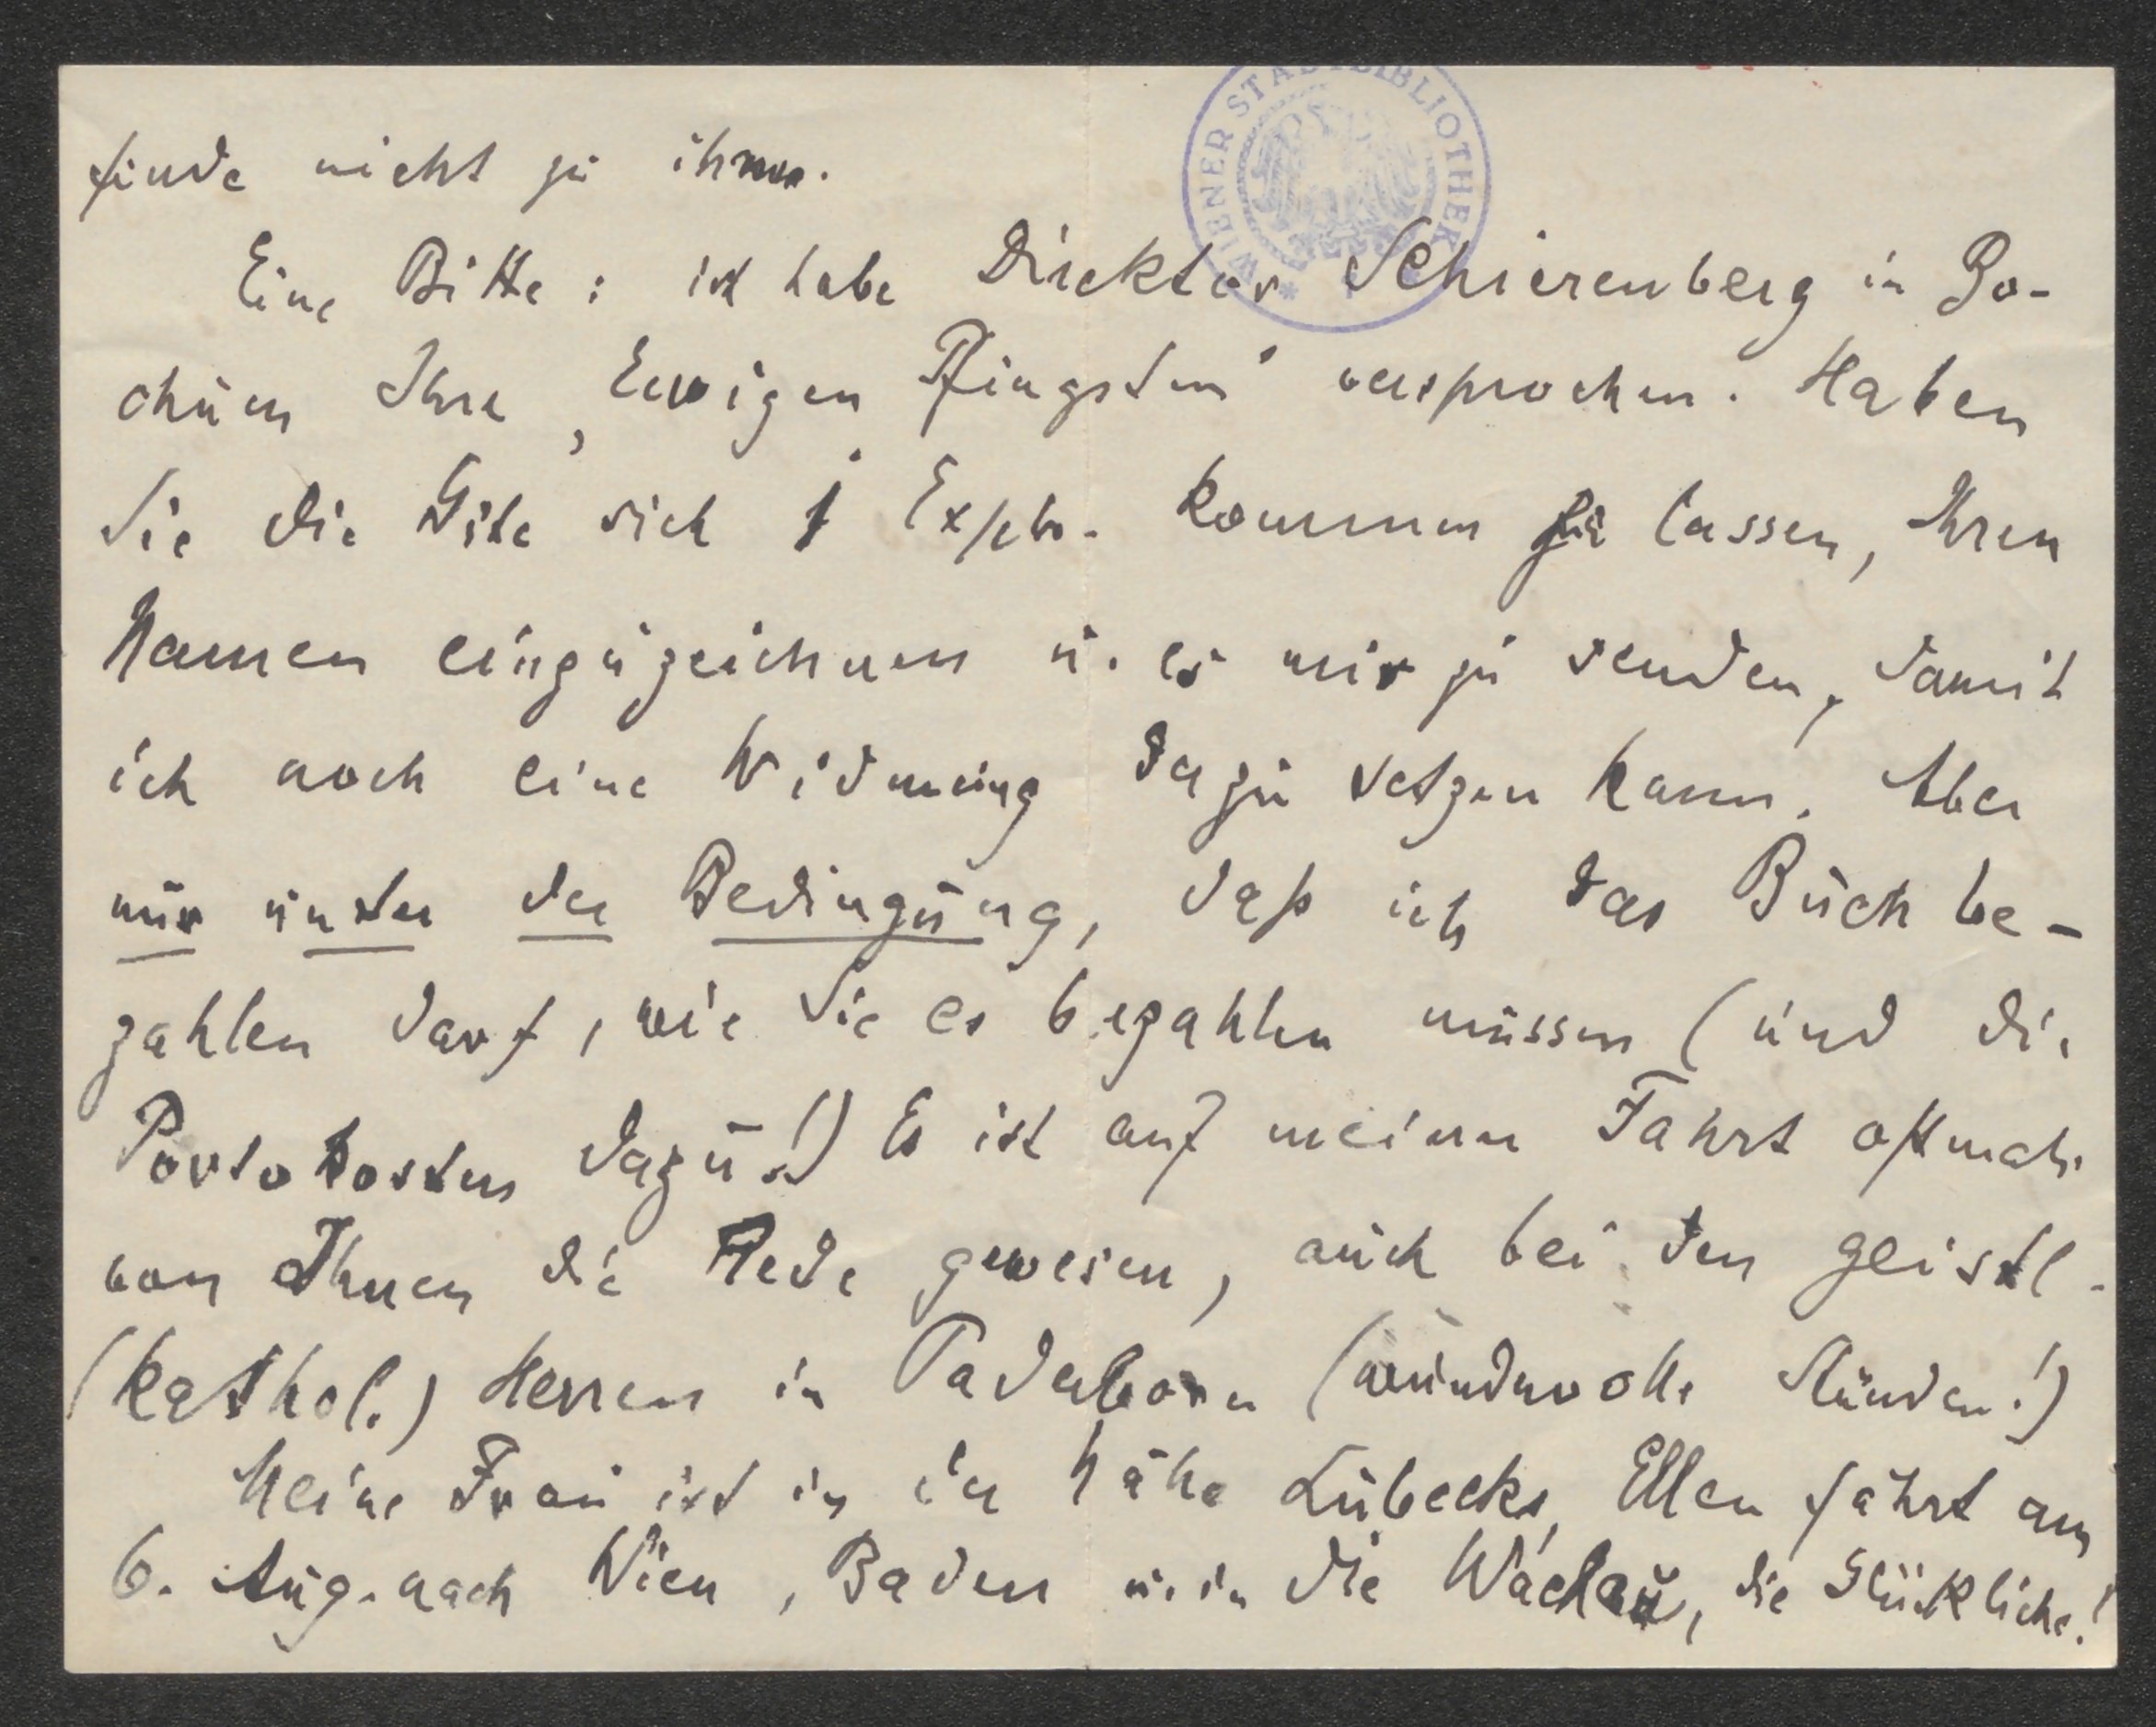 WIENER STADTBIBLIOTHEK
finde nicht zu ihnen.
Eine Bitte: ich habe Direktor Schierenberg in Bo-
chum Ihre „Ewigen Pfingsten" versprochen. Haben
Sie die Güte sich 1 Explr. kommen zu lassen, Ihren
Namen einzuzeichnen u. es mir zu senden, damit
ich noch eine Widmung dazu setzen kann. Aber
nur unter der Bedingung, daß ich das Buch be-
zahlen darf, wie Sie es bezahlen müssen (und die
Portokosten dazu!) Es ist auf meiner Fahrt oftmals
von Ihnen die Rede gewesen, auch bei den geistl.
(kathol.) Herren in Paderborn (wundervolle Stunden!)
Meine Frau ist in der Nähe Lübecks, Ellen fährt am
6. Aug. nach Wien, Baden u. in die Wachau, die Glückliche!